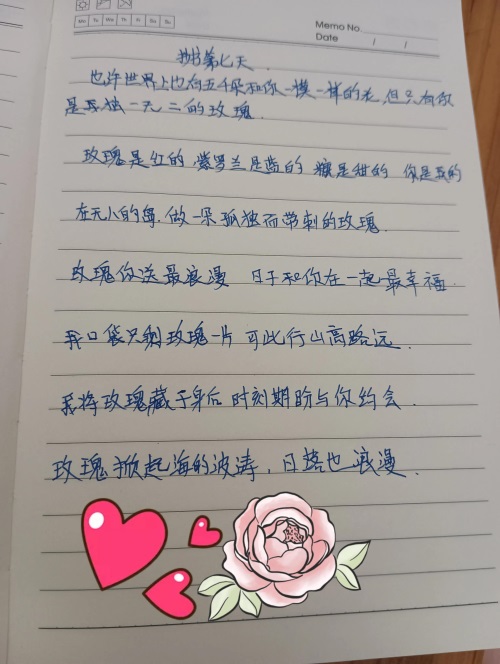 Memo No.
Date / /
Mo Tu We Th Fr Sa Su
第七天.
也许世界上也有五千朵和你一模一样的花,但只有你
是我独一无二的玫瑰.
玫瑰是红的 紫罗兰是蓝的 糖是甜的 你是我的
在无小的海.做一朵孤独而带刺的玫瑰.
玫瑰你送最浪漫 日子和你在一起最幸福.
我口袋只剩玫瑰一片 可此行山高路远.
我将玫瑰藏于身后 时刻期盼与你约会.
玫瑰掀起海的波涛,日落也浪漫.